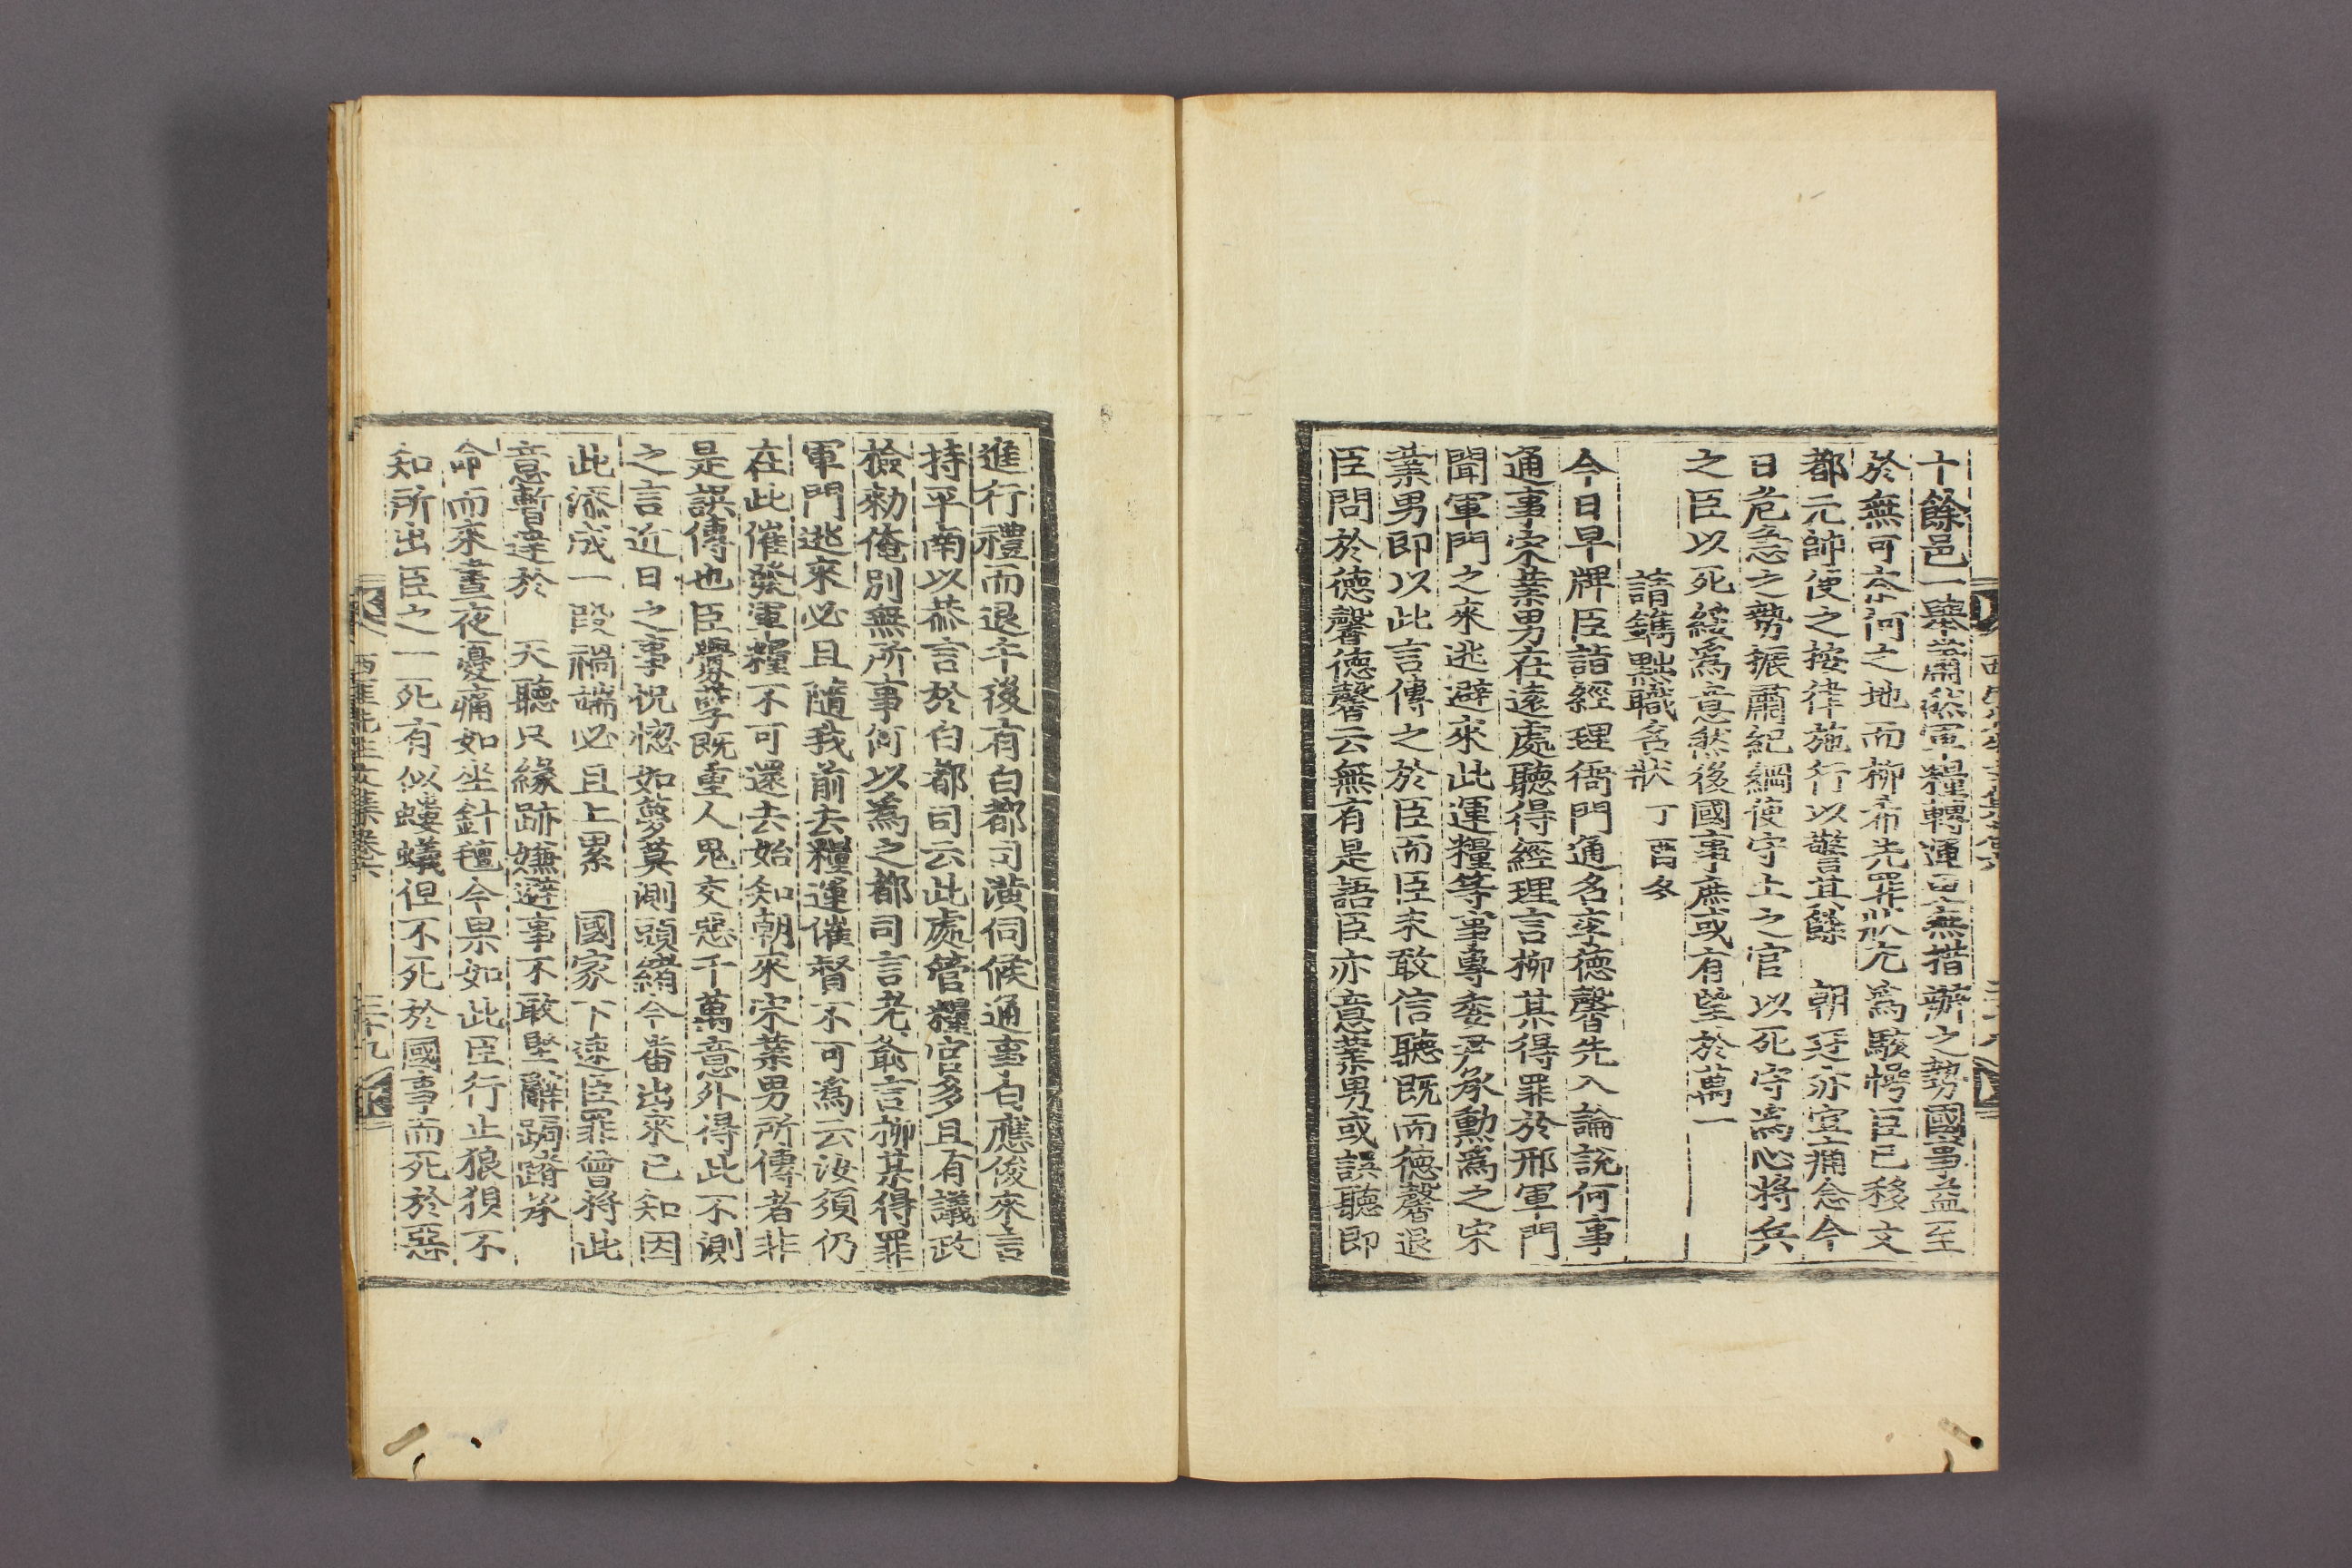 十餘邑一擧蕭然軍糧轉運百無措辦之勢國事益至
於無可奈何之地而柳希先罪狀尤爲駭愕臣已移文
都元帥使之按律施行以警其餘　朝廷亦宜痛念今
日危急之勢振肅紀綱使守土之官以死守爲心將兵
之臣以死綏爲意然後國事庶或有望於萬一
請鐫黜職名狀 丁酉冬
今日早牌臣詣經理衙門通名李德馨先入論說何事
通事宋業男在遠處聽得經理言柳某得罪於邢軍門
聞軍門之來逃避來此運糧等事專委尹承勳爲之宋
業男即以此言傳之於臣而臣未敢信聽既而德馨退
臣問於德馨德馨云無有是語臣亦意業男或誤聽即
進行禮而退午後有白都司潢伺候通事白應俊來言
持平南以恭言於白都司云此處管糧官多且有議政
撿勑俺別無所事何以爲之都司言老爺言柳某得罪
軍門逃來必且隨我前去糧運催督不可爲云汝須仍
在此催發軍糧不可還去始知朝來宋業男所傳者非
是誤傳也臣釁孽既重人鬼交惡千萬意外得此不測
之言近日之事怳惚如夢莫測頭緖今番出來已知因
此添成一段禍端必且上累　國家下速臣罪曾將此
意暫達於　天聽只緣跡嫌避事不敢堅辭跼蹐承
命而來晝夜憂痛如坐針氊今果如此臣行止狼狽不
知所出臣之一死有似螻蟻但不死於國事而死於惡
西厓先生文集卷六　三十九